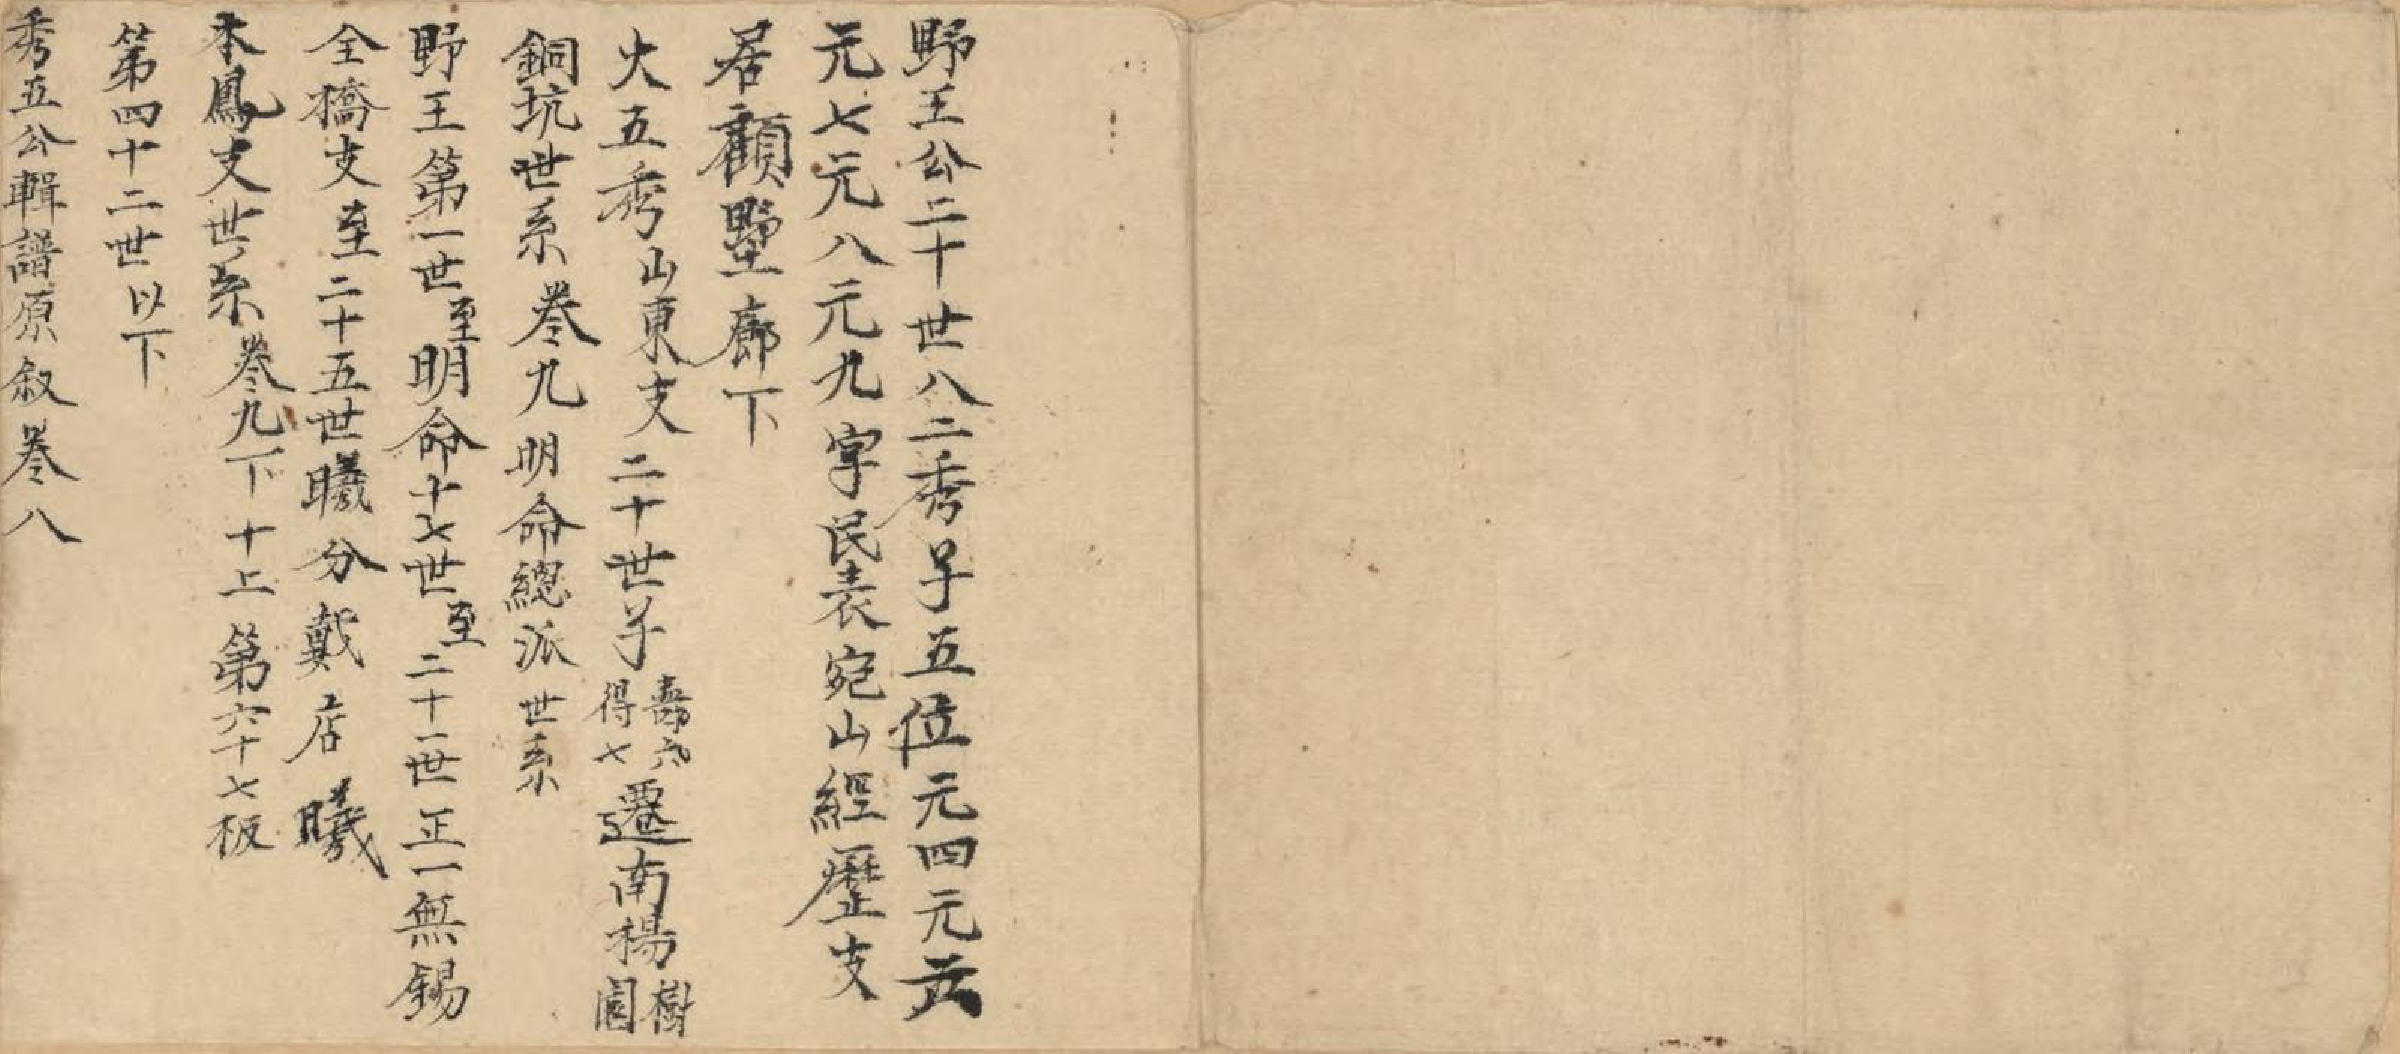 野王公二十世八二秀子五位元四元五
元七元八元九字民表宛山經歷支
居顧墅廊下
大五秀山東支二十世子壽六得七遷南楊樹園
銅坑世系卷九明命總派世系
野王第一世至明命十七世至二十一世正一無錫
全橋支至二十五世曦分戴店曦
本鳳支世系卷九下十上第六十七板
第四十二世以下
秀五公輯譜原叙卷八